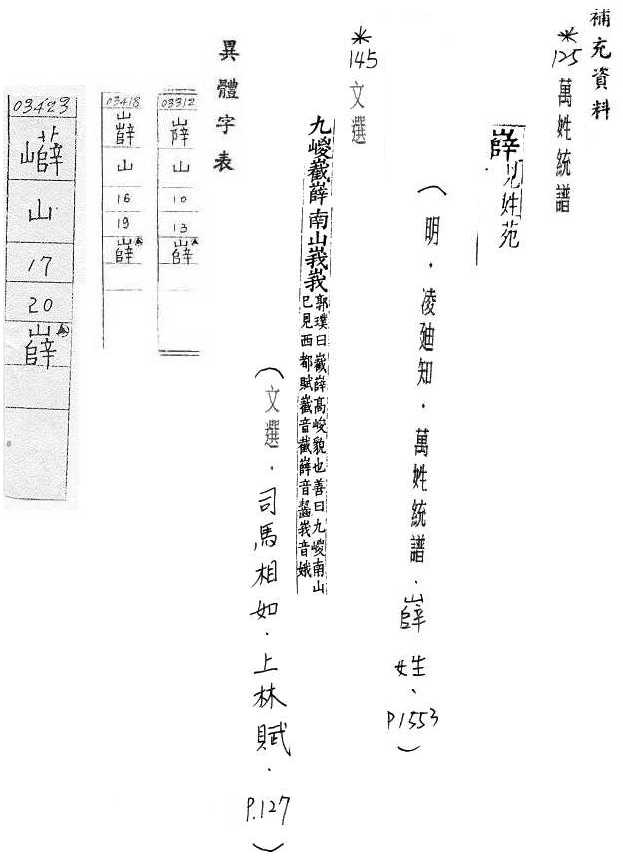 補充資料
*125 萬姓統譜
嶭 見姓苑
(明．凌廸知．萬姓統譜．嶭姓、P1553)
*145 文選
九嵕嶻嶭南山峩峩
郭璞曰嶻嶭高峻貌也善曰九嵕南山
已見西都賦嶻音截嶭音齧峩音娥
(文選．司馬相如．上林賦．P.127)
異體字表
03312
山
10
13
嶭
03418
山
16
19
嶭
03423
山
17
20
嶭